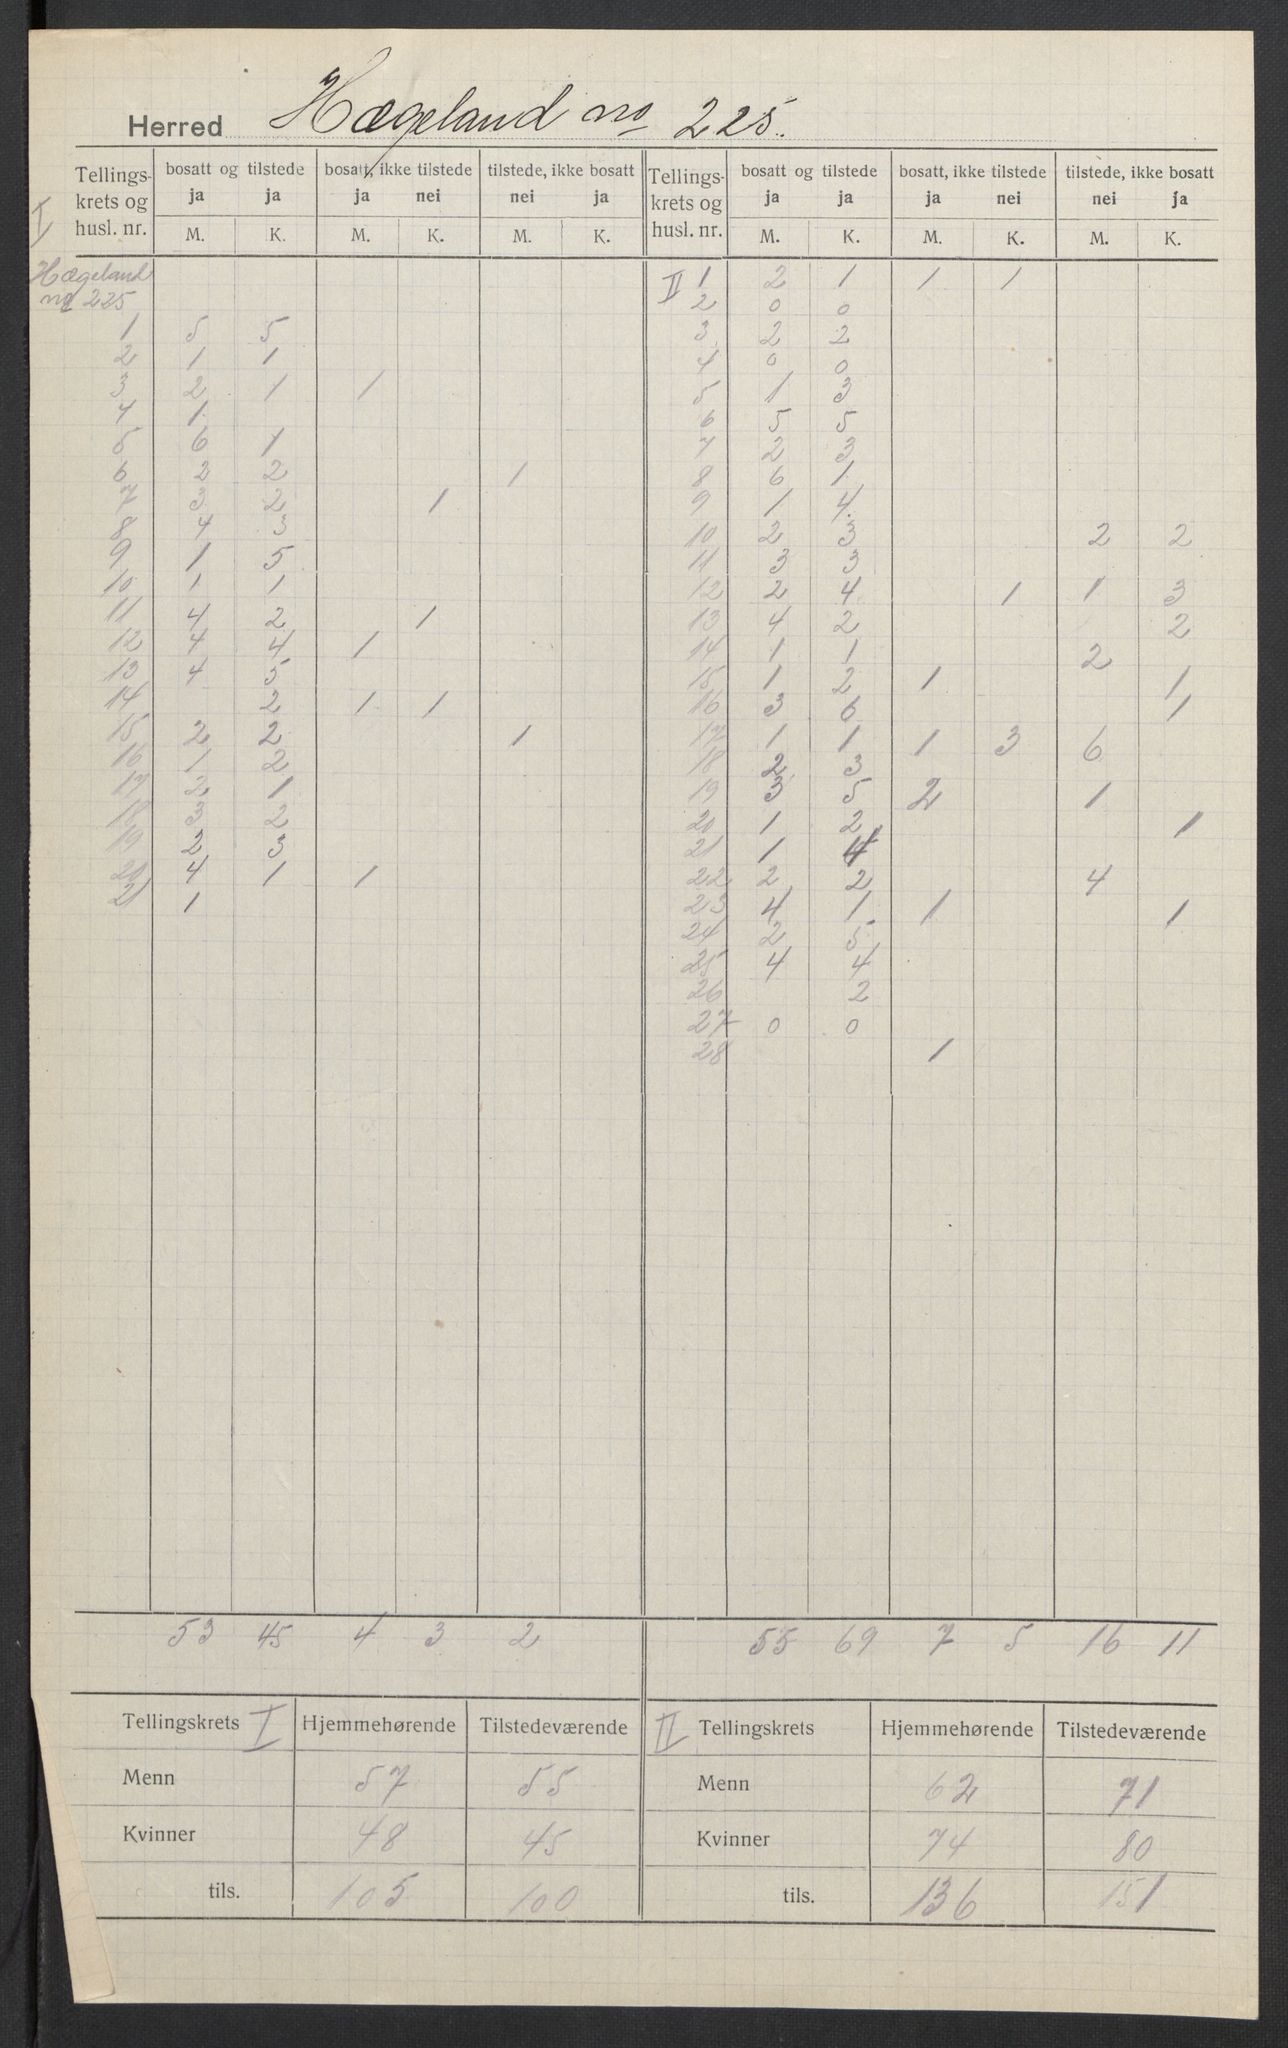 Herred Hægeland no 225.
Tellings-krets og husl. nr. | bosatt og tilstede ja ja | bosatt, ikke tilstede ja nei | tilstede, ikke bosatt nei ja | Tellings-krets og husl. nr. | bosatt og tilstede ja ja | bosatt, ikke tilstede ja nei | tilstede, ikke bosatt nei ja
I | M. | K. | M. | K. | M. | K. | M. | K. | M. | K. | M. | K.
Hægeland no 225
1 | 5 | 5
2 | 1 | 1
3 | 2 | 1 | 1
4 | 1
5 | 6 | 1
6 | 2 | 2 | | | 1
7 | 3 | 2 | | 1
8 | 4 | 3
9 | 1 | 5
10 | 1 | 1
11 | 4 | 2 | | 1
12 | 4 | 4 | 1
13 | 4 | 5
14 | | 2 | 1 | 1
15 | 2 | 2 | | | 1
16 | 1 | 2
17 | 2 | 1
18 | 3 | 2
19 | 2 | 3
20 | 4 | 1 | 1
21 | 1
53 | 45 | 4 | 3 | 2
II 1 | 2 | 1 | 1 | 1
2 | 0 | 0
3 | 2 | 2
4 | 0 | 0
5 | 1 | 3
6 | 5 | 5
7 | 2 | 3
8 | 6 | 1
9 | 1 | 4
10 | 2 | 3 | | | 2 | 2
11 | 3 | 3
12 | 2 | 4 | | 1 | 1 | 3
13 | 4 | 2 | | | | 2
14 | 1 | 1 | | | 2
15 | 1 | 2 | 1 | | | 1
16 | 3 | 6 | | | | 1
17 | 1 | 1 | 1 | 3 | 6
18 | 2 | 3
19 | 3 | 5 | 2 | | 1
20 | 1 | 2 | | | | 1
21 | 1 | 4
22 | 2 | 2 | | | 4
23 | 4 | 1 | 1 | | | 1
24 | 2 | 5
25 | 4 | 4
26 | | 2
27 | 0 | 0
28 | | | 1
55 | 69 | 7 | 5 | 16 | 11
Tellingskrets I | Hjemmehørende | Tilstedeværende
Menn | 57 | 55
Kvinner | 48 | 45
tils. | 105 | 100
II Tellingskrets | Hjemmehørende | Tilstedeværende
Menn | 62 | 71
Kvinner | 74 | 80
tils. | 136 | 151